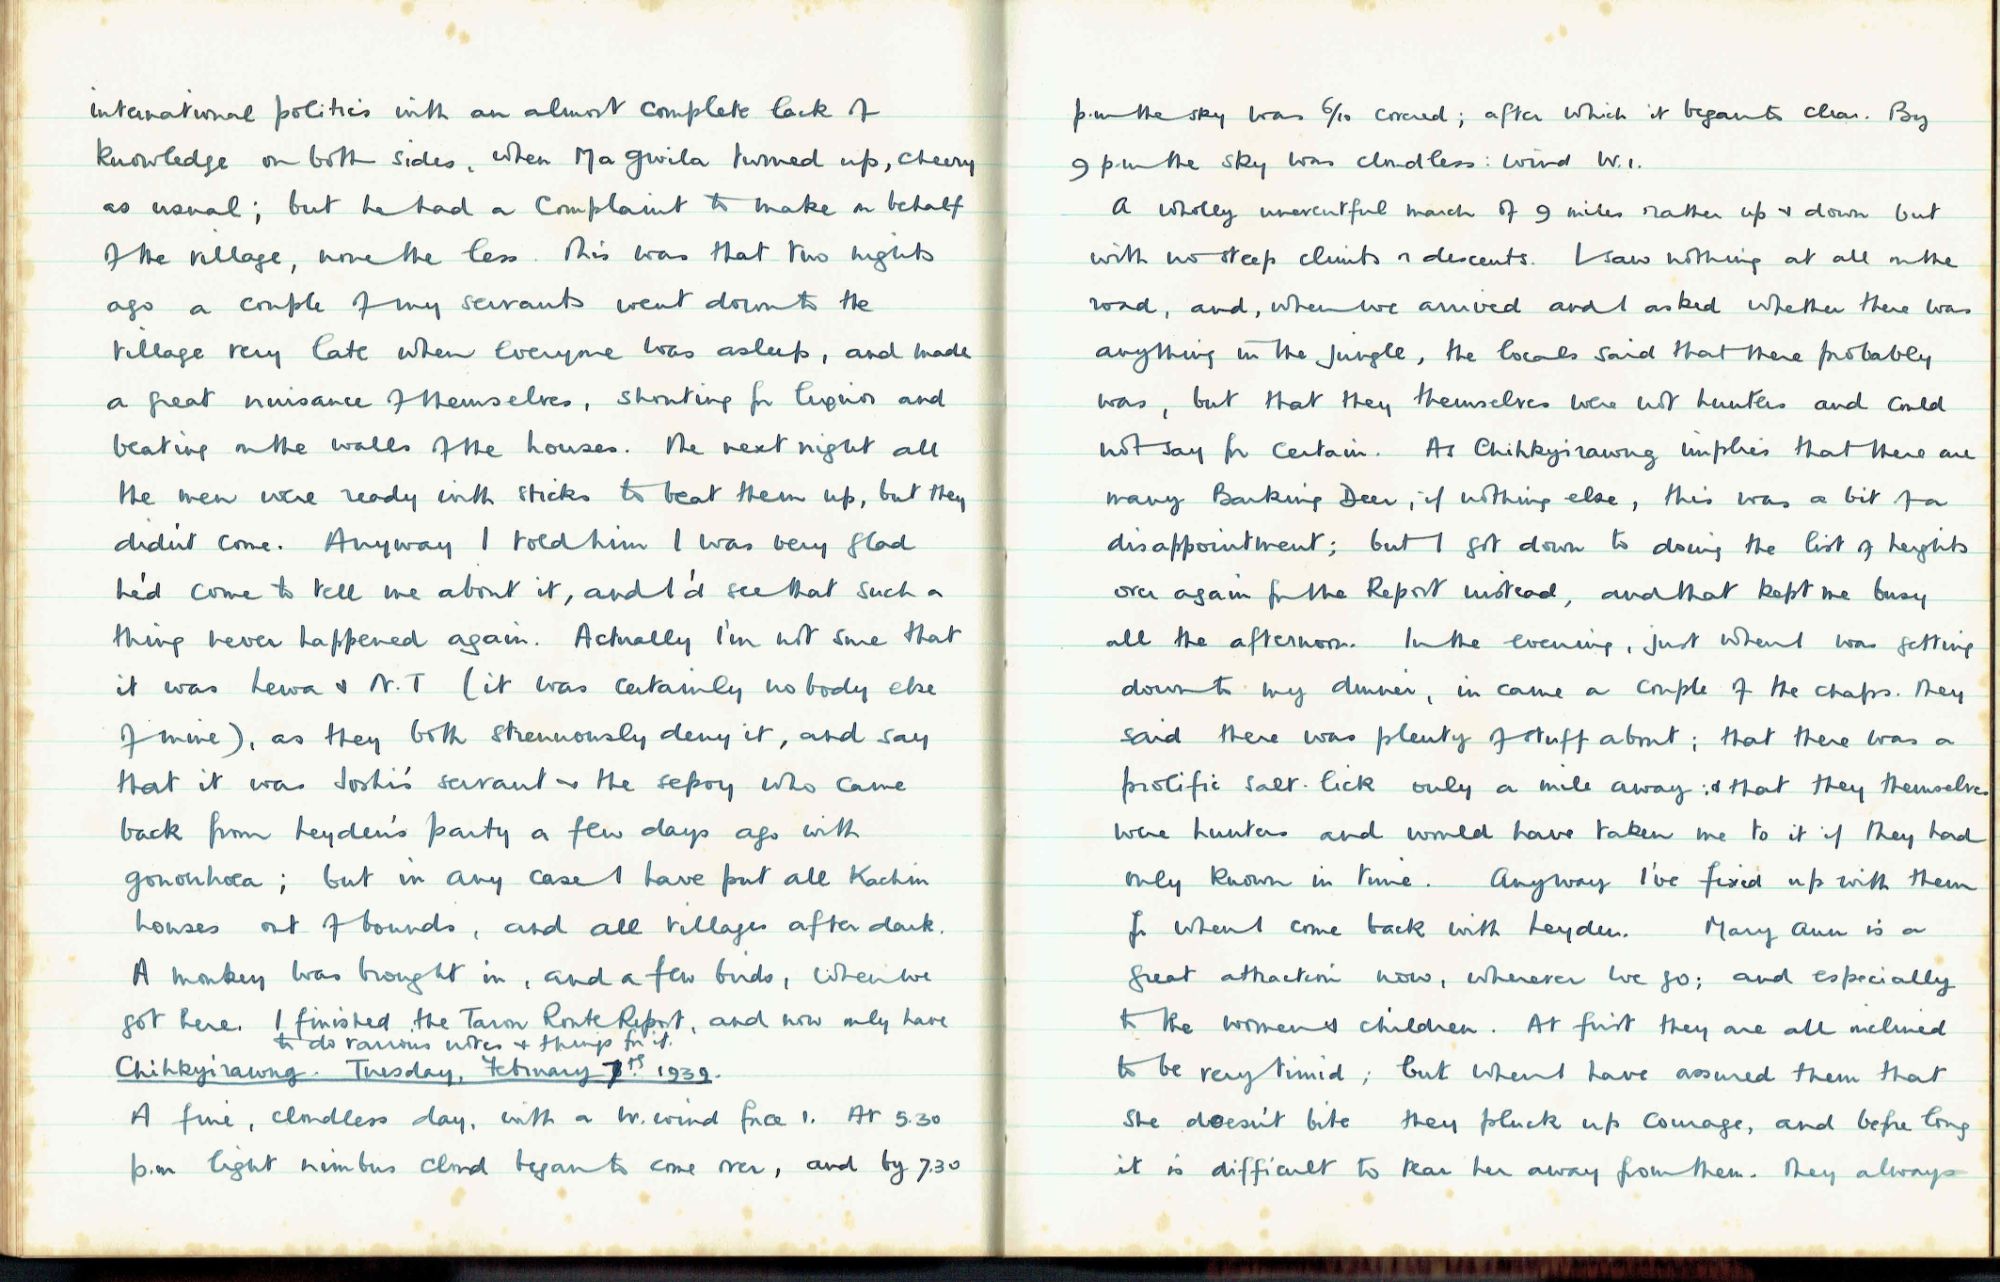 international politics with an almost complete lack of
knowledge on both sides, when Ma Gwila turned up, cheery
as usual; but he had a complaint to make on behalf
of the village, none the less. This was that two nights
ago a couple of my servants went down to the
village very late when everyone was asleep, and made
a great nuisance of themselves, shouting for liquor and
beating on the walls of the houses. The next night all
the men were ready with sticks to beat them up, but they
didn't come. Anyway I told him I was very glad
he'd come to tell me about it, and I'd see that such a
thing never happened again. Actually I'm not sure that
it was Lewa & N.T (it was certainly nobody else
of mine), as they both strenuously deny it, and say
that it was Joshi's servant & the sepoy who came
back from Leyden's party a few days ago with
gonorrhoea; but in any case I have put all Kachin
houses out of bounds, and all villages after dark.
A monkey was brought in, and a few birds, when we
got here. I finished the Taron Route Report, and now only have
to do various notes & things for it.
Chihkyirawng. Tuesday, February 7th 1939.
A fine, cloudless day, with a W. wind force 1. At 5.30
p.m light nimbus cloud began to come over, and by 7.30
p.m the sky was 6/10 covered; after which it began to clear. By
9 p.m the sky was cloudless: wind W.1.
A wholly uneventful march of 9 miles rather up & down but
with no steep climbs or descents. I saw nothing at all on the
road, and, when we arrived and I asked whether there was
anything in the jungle, the locals said that there probably
was, but that they themselves were not hunters and could
not say for certain. As Chihkyirawng implies that there are
many Barking Deer, if nothing else, this was a bit of a
disappointment; but I got down to doing the list of heights
over again for the Report instead, and that kept me busy
all the afternoon. In the evening, just when I was getting
down to my dinner, in came a couple of the chaps. They
said there was plenty of stuff about; that there was a
prolific salt-lick only a mile away; & that they themselves
were hunters and would have taken me to it if they had
only known in time. Anyway I've fixed up with them
for when I come back with Leyden. Mary Ann is a
great attraction now, wherever we go; and especially
to the women & children. At first they are all inclined
to be very timid; but when I have assured them that
she doesn't bite they pluck up courage, and before long
it is difficult to tear her away from them. They always